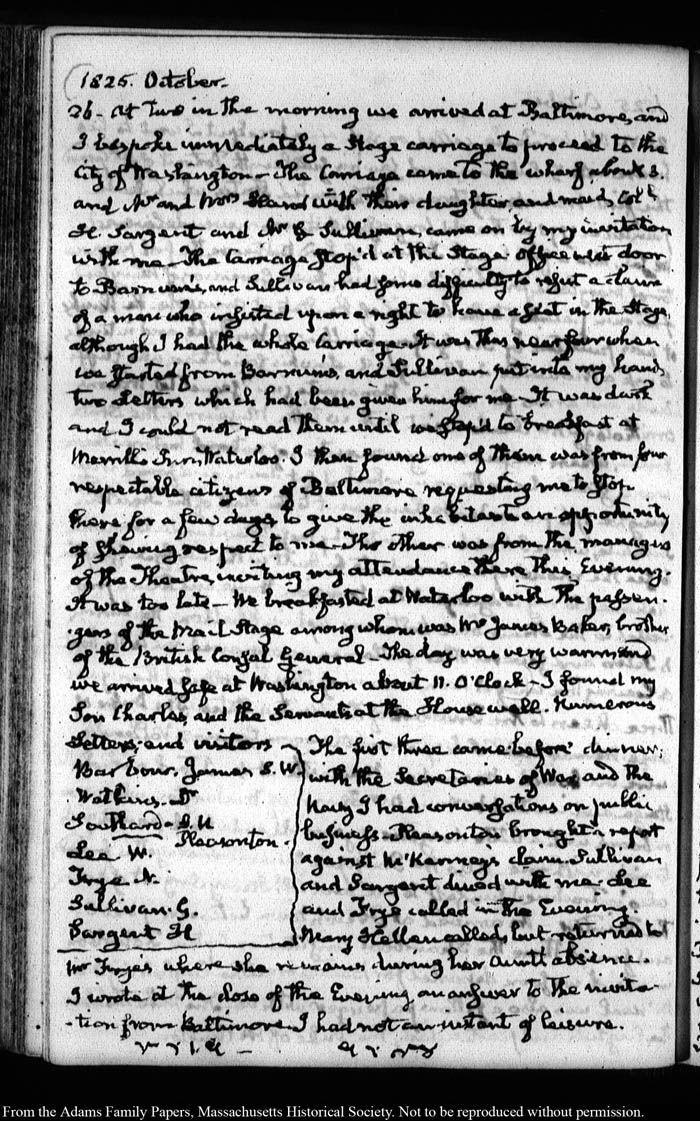 1825. October.
26- At two in the morning we arrived at Baltimore, and
I bespoke immediately a Stage carriage to proceed to the
City of Washington - The Carriage came to the wharf about 3.
and Mr and Mrs with their daughter and maid, Coll
H. Sargent and Mr G Sullivan, came on by my invitation
with me. The Carriage stop'd at the Stage Office next door
to Barnum's, and Sullivan had some difficulty to refute a claim
of a man who insisted upon a right to have a seat in the Stage,
although I had the whole Carriage. It was thus near four when
we started from Barnum's, and Sullivan put into my hand,
two Letters which had been given him for me. It was dark
and I could not read them until we stop'd to breakfast at
Merrill's Inn, Waterloo. I then found one of them was from four
respectable citizens of Baltimore requesting me to stop
there for a few days, to give the inhabitants an opportunity
of shewing respect to me. The other was from the managers
of the Theatre, inviting my attendance there this Evening.
It was too late - We breakfasted at Waterloo with the passen-
-gers of the Mail Stage among whom was Mr James Baker, brother
of the British Consul General - The day was very warm and
we arrived safe at Washington about 11. O'Clock - I found my
Son Charles, and the Servants at the House well. Numerous
Letters, and visitors
Barbour, James S. W.
Watkins. Dr
Southard. S. N
Pleasonton.
Lee W.
Frye N.
Sullivan. G.
Sargent H
The first three came before dinner;
with the Secretaries of War and the
Navy I had conversations on public
business. Pleasonton brought a report
against McKenney's claim. Sullivan
and Sargent dined with me. Lee
and Frye called in the Evening.
Mary Hellen called, but returned to
Mr Frye's where she remains during her Aunt's absence.
I wrote at the close of the Evening an answer to the invita-
-tion from Baltimore. I had not an instant of leisure.
From the Adams Family Papers, Massachusetts Historical Society. Not to be reproduced without permission.